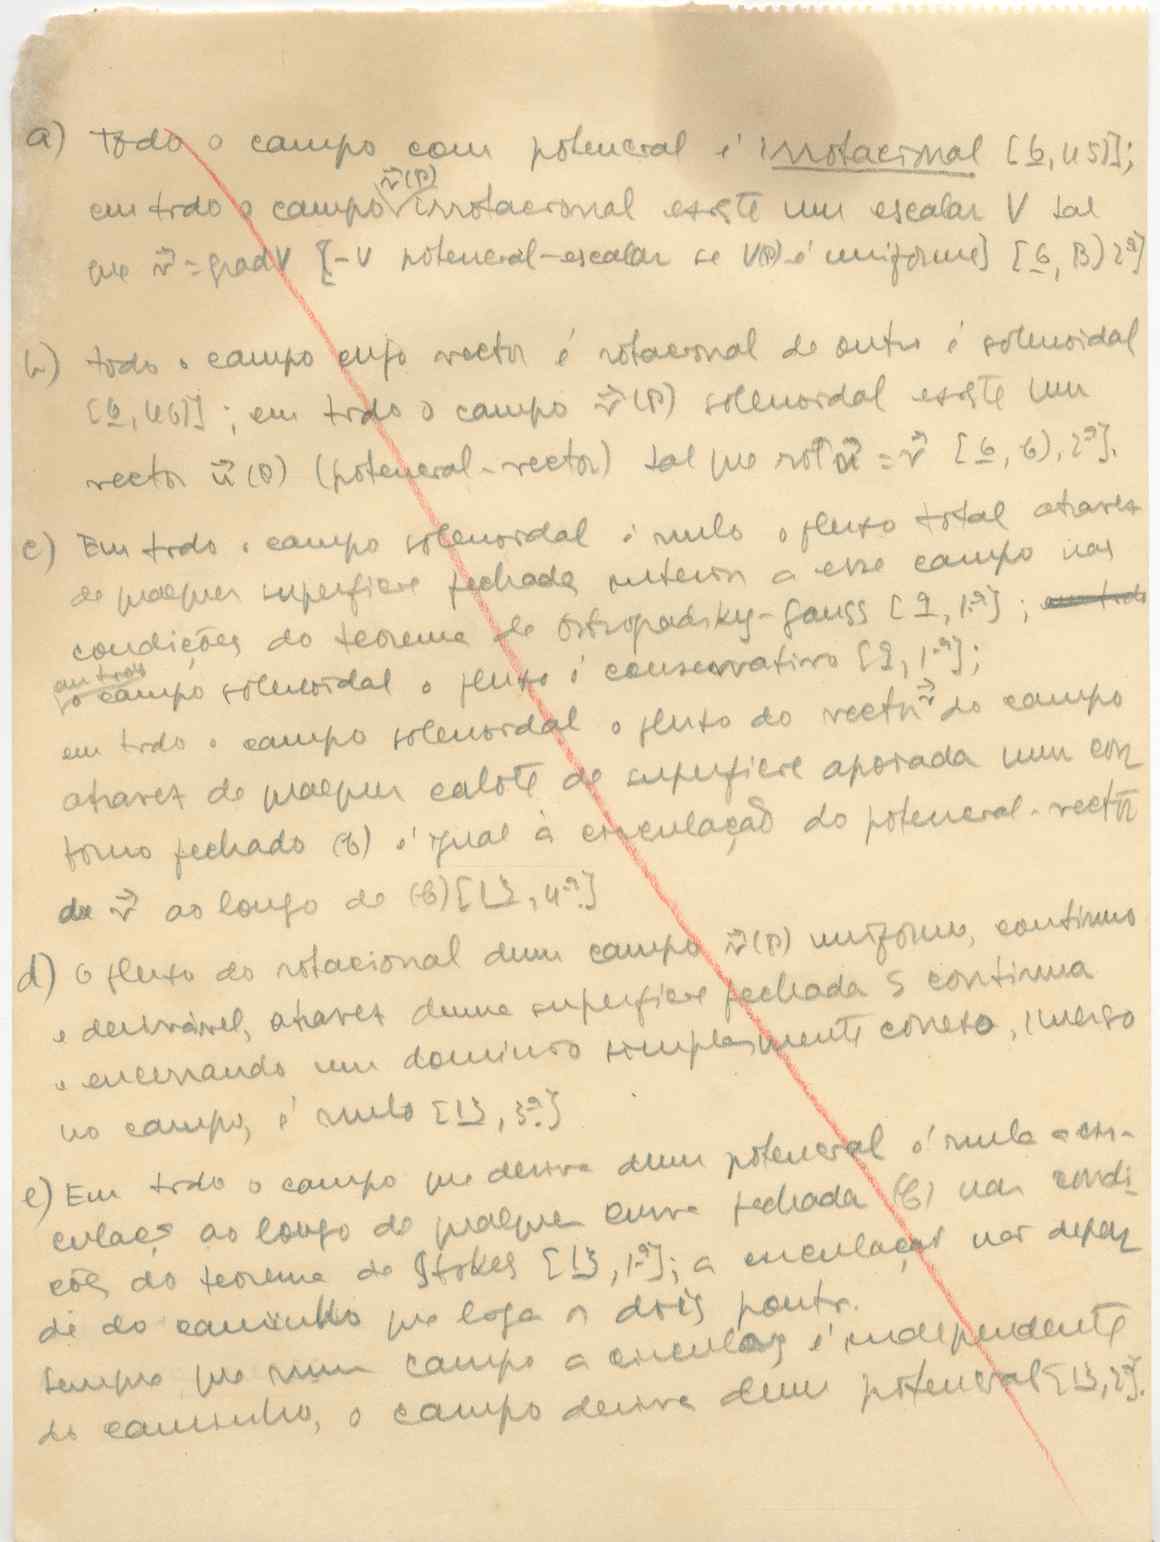 a) Todo o campo com potencial é irrotacional [6, 45)];
em todo o campo v⃗(P) irrotacional existe um escalar V tal
que v⃗ = grad V [-V potencial-escalar se V(P) é uniforme] [6, B) 2º]
b) todo o campo cujo vector é rotacional de outro é solenoidal
[6, 46)]; em todo o campo v⃗(P) solenoidal existe um
vector u⃗(P) (potencial-vector) tal que rot u⃗ = v⃗ [6, 6), 2º].
c) Em todo o campo solenoidal é nulo o fluxo total atravez
de qualquer superficie fechada interior a esse campo nas
condições do teorema de Ostrogadsky-Gauss [9, 1º];
em todo o campo solenoidal o fluxo é conservativo [9, 1º];
em todo o campo solenoidal o fluxo do vector v⃗ do campo
atravez de qualquer calote de superficie apoiada num con
torno fechado (C) é igual à circulação do potencial-vector
de v⃗ ao longo de (C) [13, 4º]
d) O fluxo do rotacional dum campo v⃗(P) uniforme, continuo
e derivável, atravez duma superficie fechada S continua
e encerrando um dominio simplesmente conexo, imerso
no campo, é nulo [13, 3º]
e) Em todo o campo que deriva dum potencial é nula a cir-
culação ao longo de qualquer curva fechada (C) nas condi-
ções do teorema de Stokes [13, 1º]; a circulação não depen
de do caminho que liga os dois pontos.
Sempre que num campo a circulação é independente
do caminho, o campo deriva dum potencial [13, 2º].